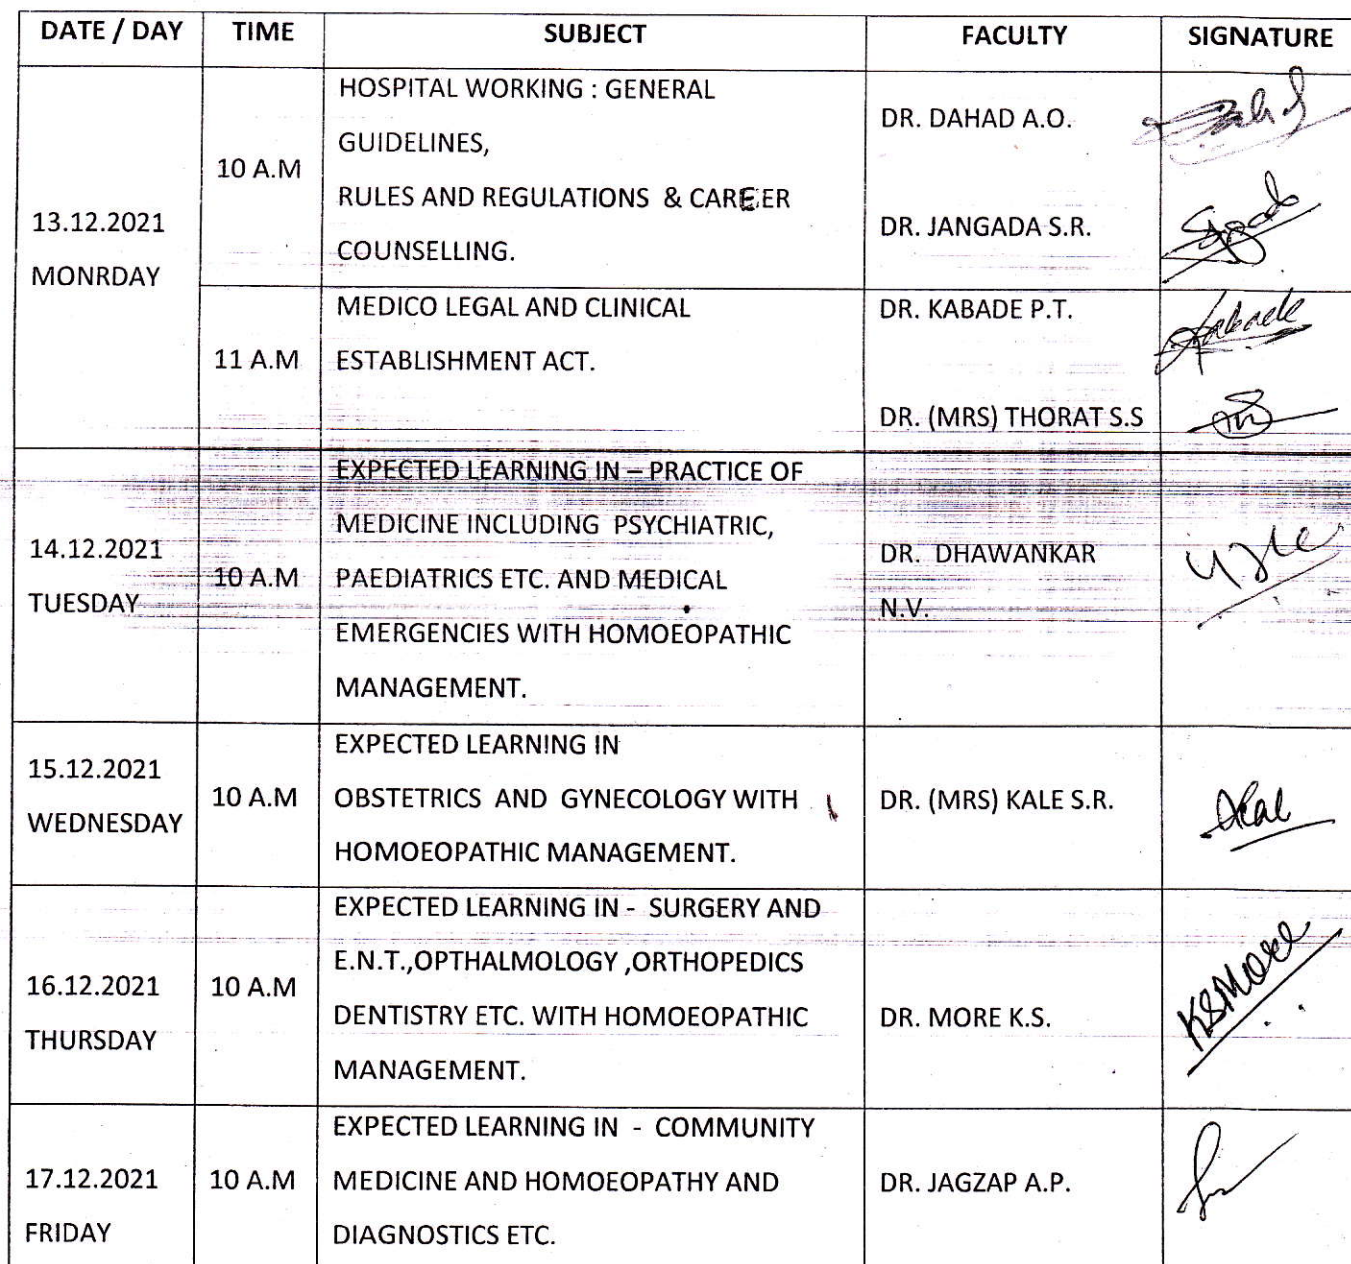 DATE / DAY TIME SUBJECT FACULTY SIGNATURE
13.12.2021
MONRDAY
10 A.M
HOSPITAL WORKING : GENERAL
GUIDELINES,
RULES AND REGULATIONS & CAREER
COUNSELLING.
DR. DAHAD A.O.
DR. JANGADA S.R.
11 A.M
MEDICO LEGAL AND CLINICAL
ESTABLISHMENT ACT.
DR. KABADE P.T.
Kabade
DR. (MRS) THORAT S.S
14.12.2021
TUESDAY
10 A.M
EXPECTED LEARNING IN – PRACTICE OF
MEDICINE INCLUDING PSYCHIATRIC,
PAEDIATRICS ETC. AND MEDICAL
EMERGENCIES WITH HOMOEOPATHIC
MANAGEMENT.
DR. DHAWANKAR
N.V.
15.12.2021
WEDNESDAY
10 A.M
EXPECTED LEARNING IN
OBSTETRICS AND GYNECOLOGY WITH
HOMOEOPATHIC MANAGEMENT.
DR. (MRS) KALE S.R.
16.12.2021
THURSDAY
10 A.M
EXPECTED LEARNING IN - SURGERY AND
E.N.T.,OPTHALMOLOGY ,ORTHOPEDICS
DENTISTRY ETC. WITH HOMOEOPATHIC
MANAGEMENT.
DR. MORE K.S.
KSMore
17.12.2021
FRIDAY
10 A.M
EXPECTED LEARNING IN - COMMUNITY
MEDICINE AND HOMOEOPATHY AND
DIAGNOSTICS ETC.
DR. JAGZAP A.P.